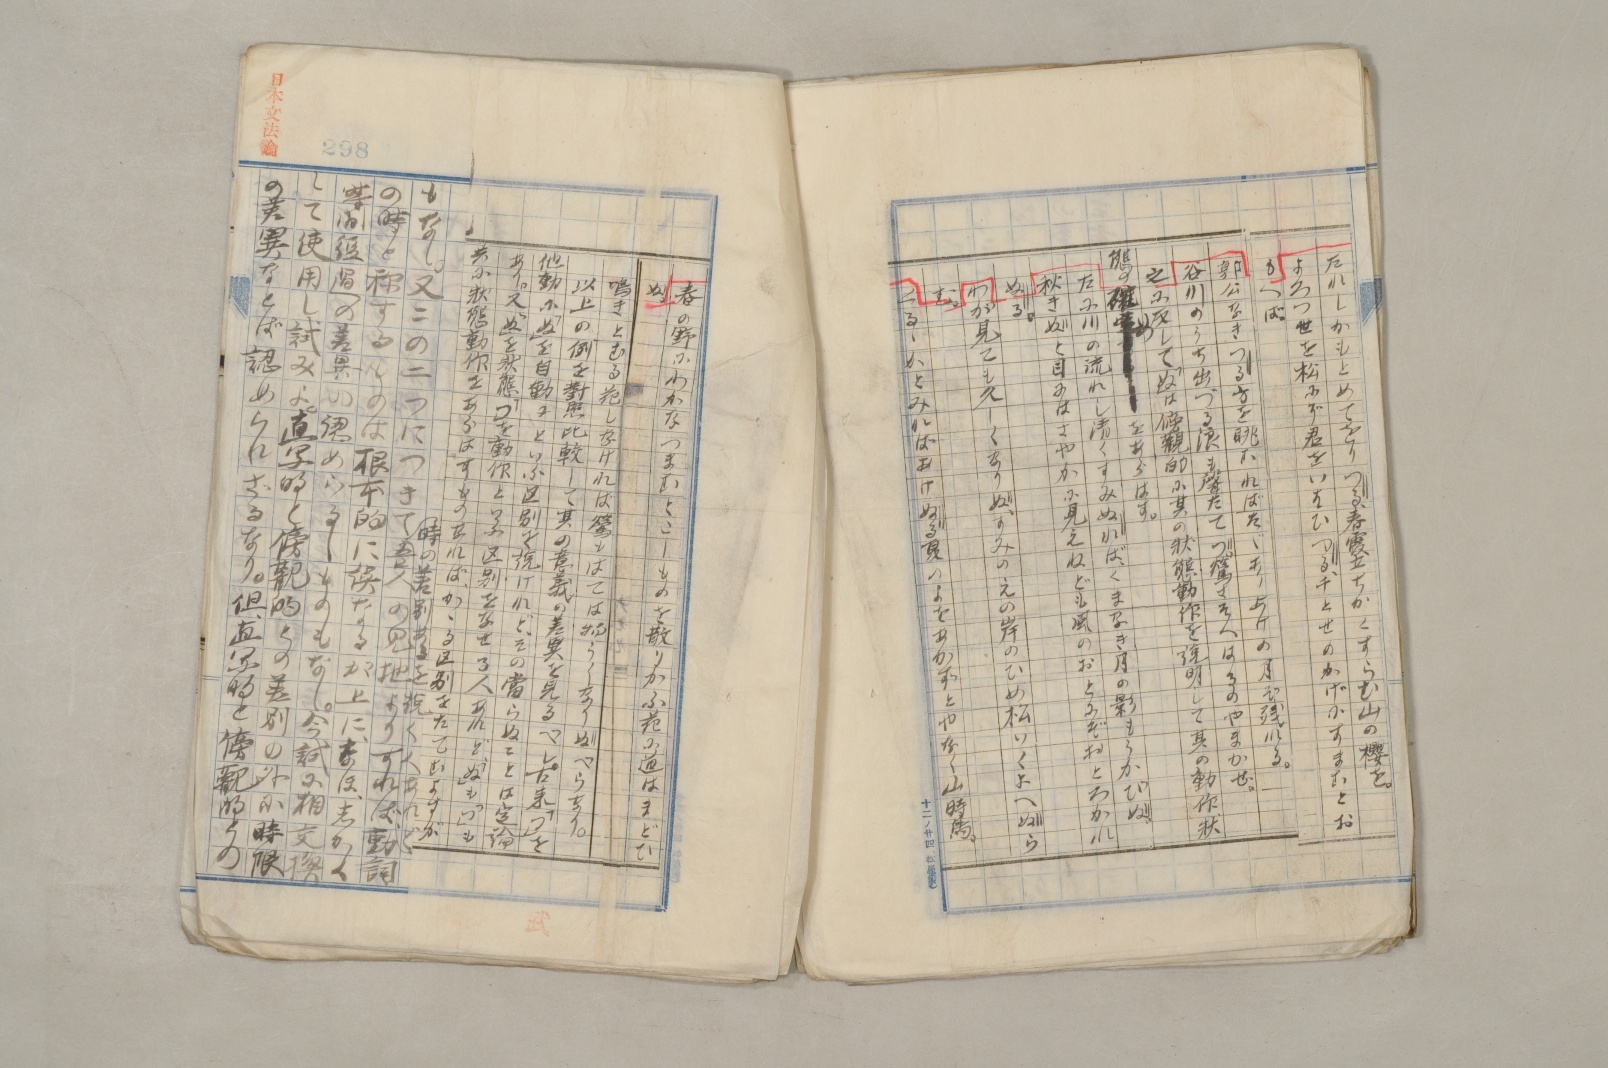 たれしかもとめてをりつる春霞立ちかくすらむ山の櫻を。
よろつ世を松にぞ君をいはひつる千とせのかげにすまむとお
もへば。
郭公なきつる方を眺むればたゞありあけの月ぞ残れる。
谷川のうち出づる浪も聲たてつ鶯さそへはるのやまかぜ。
之に反してぬは傍観的に其の状態動作を説明して其の動作状
態の確めをあらはす。
たつ川の流れし清くすみぬればくまなき月の影もうかびぬ
秋きぬと目にはさやかに見えねども風のおとにぞおとろかれ
ぬる。
わが見ても久しくなりぬすみのえの岸のひめ松いくよへぬら
む。
くるゝかとみればあけぬる夏のよをあかずとやなく山時鳥。
十二ノ廿四
春の野にわかなつまむとこしものを散りかふ花に道はまどひ
ぬ。
鳴きとむる花しなければ鶯もはては物うくなりぬべらなり。
以上の例を對照比較して其の意義の差異を見るべし。古来「つ」を
他動に「ぬ」を自動にといふ区別を説けれど、その當らぬことは定論
あり。又「ぬ」を状態「つ」を動作といふ区別をなせる人あれど「ぬ」も「つ」も
共に状態動作をあらはすものなれば、かゝる区別をたてむよすが
もなし。又この二つにつきて時の差別あるを説く人あれど、
吾人の見地よりすれば動詞
の時と称するものは根本的に誤なるが上に、なほ、しかく
時間段階の差異の認めらるゝものもなし。今試に相交換
して使用し試みよ。直写的と傍観的との差別の外に時限
の差異なとば認められざるなり。但直写的と傍観的との
日本文法論
298